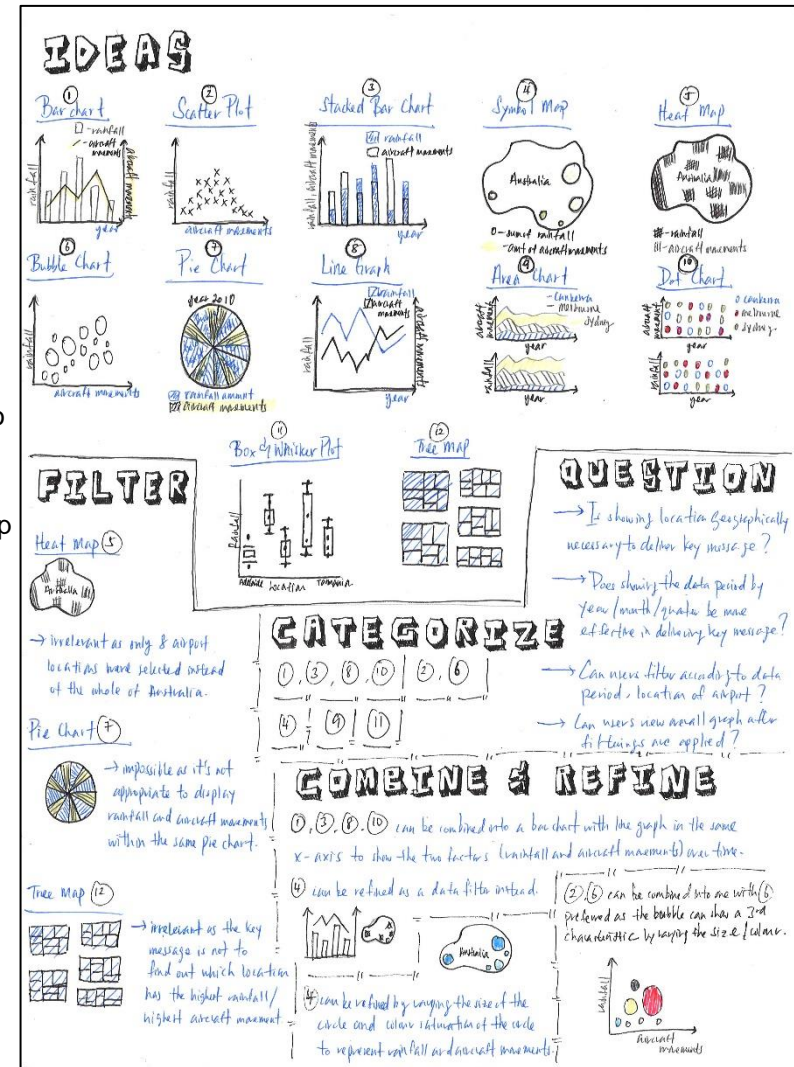 IDEAS
①
Bar chart
▯ - rainfall
/ - aircraft
movements
rainfall
aircraft movements
year
②
Scatter Plot
aircraft movements
③
Stacked Bar Chart
rainfall
aircraft movements
rainfall, aircraft movements
year
④
Symbol Map
Australia
O - sum of rainfall
- amt of aircraft movements
⑤
Heat Map
Australia
# - rainfall
||| - aircraft movements
⑥
Bubble Chart
rainfall
aircraft movements
⑦
Pie Chart
year 2010
rainfall amount
aircraft movements
⑧
Line Graph
rainfall
aircraft movements
rainfall
aircraft movements
year
⑨
Area Chart
- Canberra
- Melbourne
Sydney
aircraft movement
year
rainfall
year
⑩
Dot Chart
o Canberra
o Melbourne
o Sydney
aircraft movement
year
rainfall
year
⑪
Box & Whisker Plot
Rainfall
Adelaide Location Tasmania
⑫
Tree Map
o
p
FILTER
Heat Map ⑤
Australia
→ irrelevant as only 8 airport
locations were selected instead
of the whole of Australia.
Pie Chart ⑦
→ impossible as it's not
appropriate to display
rainfall and aircraft movements
within the same pie chart.
Tree Map ⑫
→ irrelevant as the key
message is not to
find out which location
has the highest rainfall/
highest aircraft movement
CATEGORIZE
①, ③, ⑧, ⑩ ②, ⑥
④ ⑨ ⑪
QUESTION
→ Is showing location geographically
necessary to deliver key message?
→ Does showing the data period by
year/month/quater be more
effective in delivering key message?
→ Can users filter according to data
period, location of airport?
→ Can users view overall graph after
filterings are applied?
COMBINE & REFINE
①, ③, ⑧, ⑩ can be combined into a bar chart with line graph in the same
x-axis to show the two factors (rainfall and aircraft movements) over time.
④ can be refined as a data filter instead.
Australia
④ can be refined by varying the size of the
circle and colour saturation of the circle
to represent rainfall and aircraft movements.
②, ⑥ can be combined into one with ⑥
preferred as the bubble can show a 3rd
characteristic by varying the size & colour.
rainfall
aircraft
movements